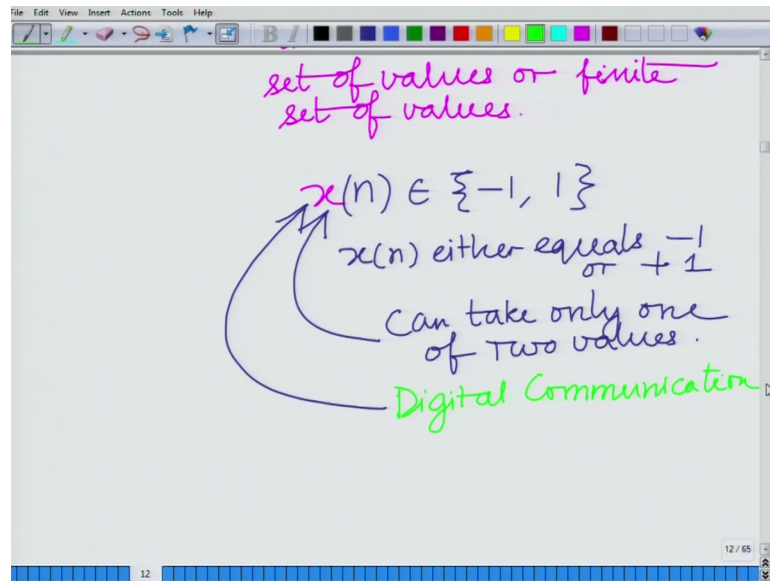 File Edit View Insert Actions Tools Help
B I
set of values or finite
set of values.
x(n) ∈ {-1, 1}
x(n) either equals -1
or +1
Can take only one
of Two values.
Digital Communication
12 / 65
12